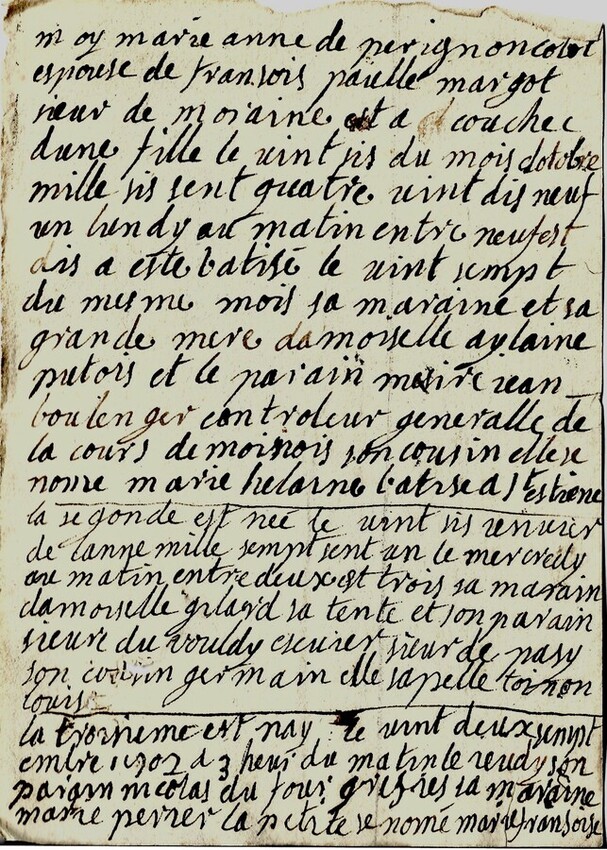 moy marie anne de perignon
espouse de fransois paulle margot
sieur de moraine est a couchee
dune fille le uint sis du mois dotobre
mille sis sent quatre uint dis neuf
un lundy au matin entre neuf est
dis a este batisé le uint sempt
du mesme mois sa maraine et sa
grande mere damoiselle aylaine
putois et le parain mesire iean
boulenger controleur generalle de
la cours de son cousin elle se
nome marie helaine batisé a st estiene
la segonde est neé le uint sis ienuier
de lanne mille sempt sent un le mercredy
au matin entre deux est trois sa marain
damoiselle gilard sa tente et son parain
sieure du vouldy escuier sieur de pasy
son cousin germain elle sapelle toinon
louise
la troisieme est nay le uint deux sempt
embre 1702 a 3 heur du matin le ieudy son
parain nicolas du four sa maraine
marie perrer la petite se nomé marie fransoise